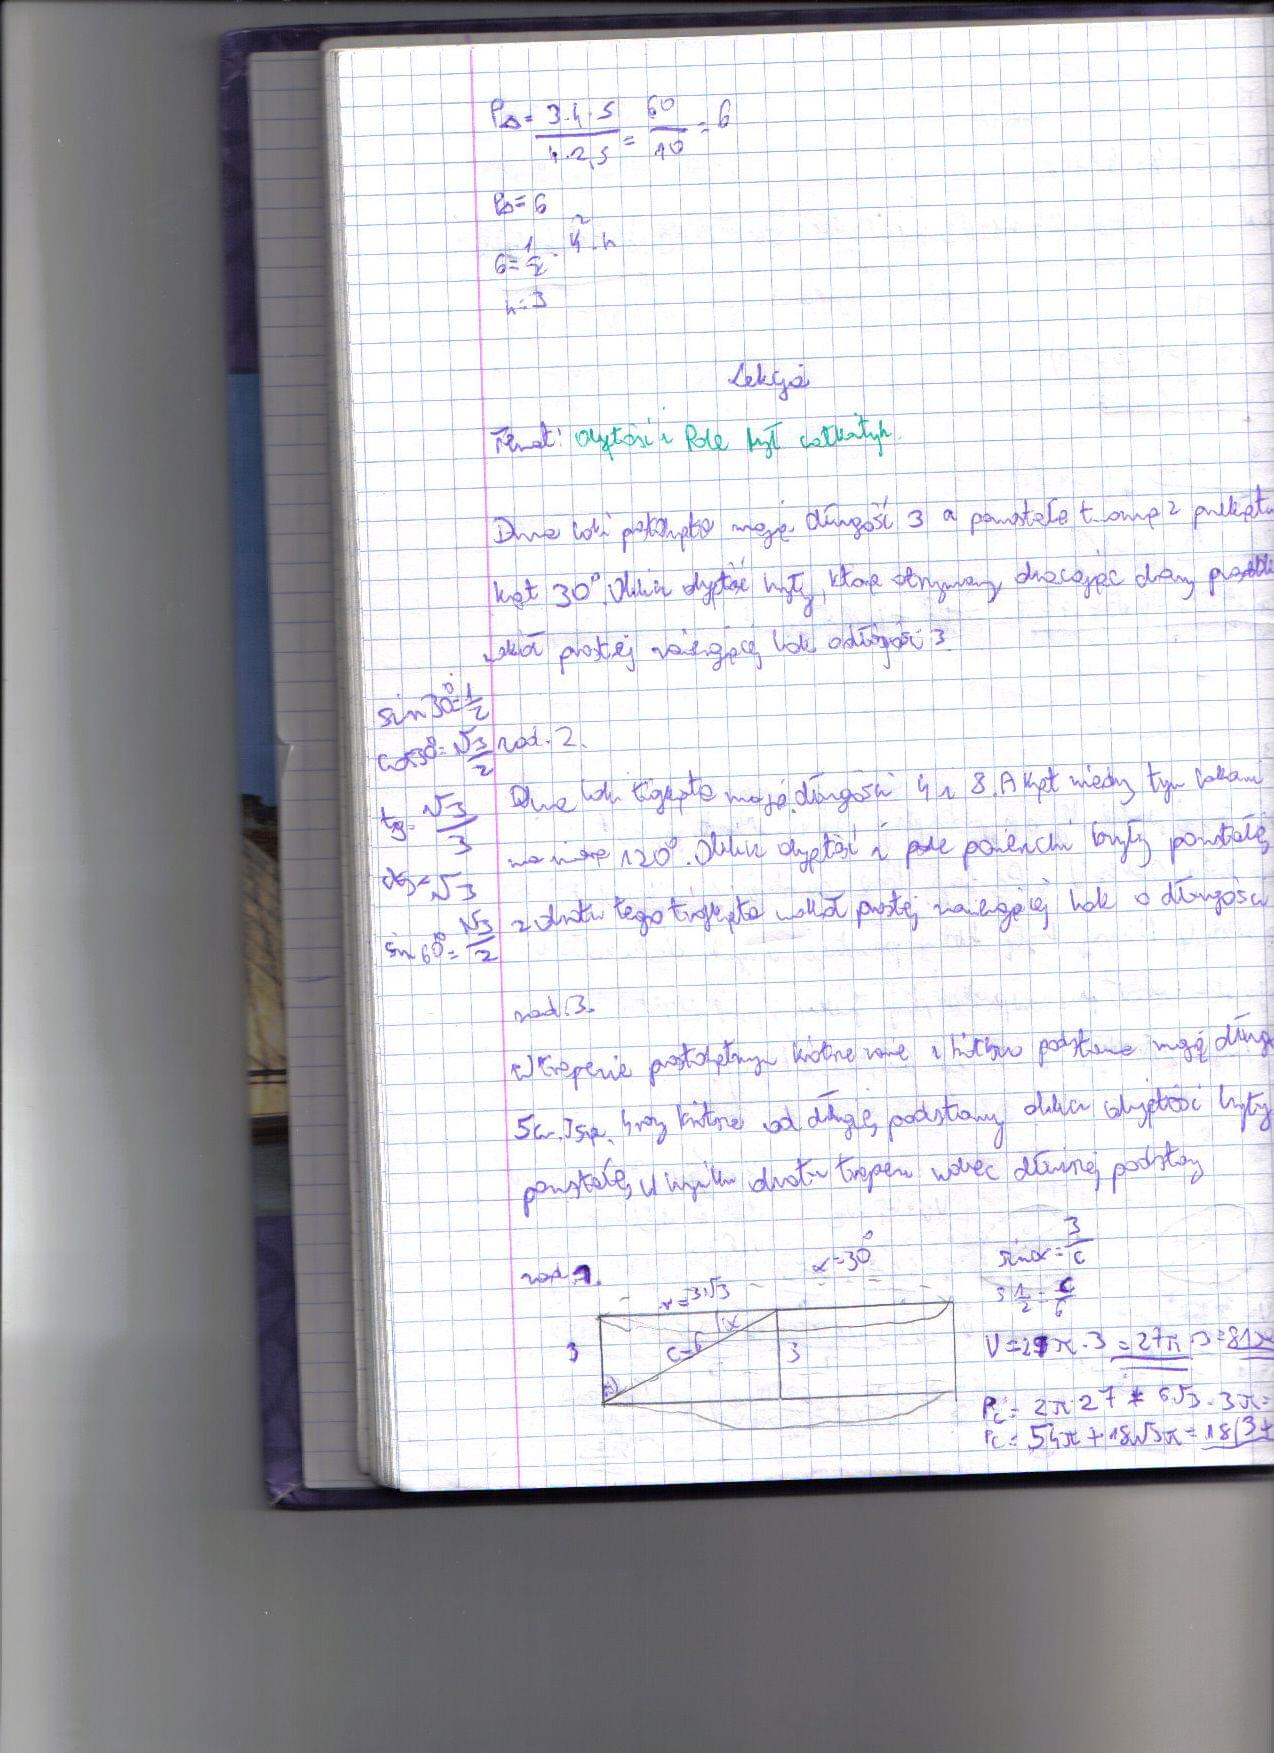 P△ = 3·4·5 / 4·2,5 = 60/10 = 6
P△ = 6
6 = 1/2 · 4 · h
h = 3
Lekcja
Temat: Objętość i Pole brył
Dwa boki prostokąta mają długość 3 a pozostałe tworzą z przekątną
kąt 30°. Oblicz objętość bryły, którą otrzymamy obracając dany
wokół prostej zawierającej bok o długości 3
sin30°=1/2
cos30°=√3/2 zad. 2.
Dwa boki trójkąta mają długości 4 i 8. A kąt między tym bokami
tg=√3/3
ma miarę 120°. Oblicz objętość i pole powierzchni bryły powstałej
ctg=√3
z obrotu tego trójkąta wokół prostej zawierającej bok o długości
sin60°=√3/2
zad. 3.
W trapezie prostokątnym krótsze ramię i krótsza podstawa mają
5cm. 3 razy krótsze od dłuższej podstawy oblicz objętość bryły
powstałej w wyniku obrotu trapezu dłuższej podstawy
zad 1.
α=30°
sinα = 3/c
r=3√3
α
1/2 = /6
3
c=6
3
V=27π·3=27π·3=81π
Pc = 2π·27 + 6√3·3π=
Pc = 54π+18√3π=18(3+